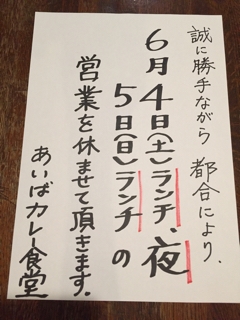 誠に勝手ながら 都合により、
6月4日(土)ランチ、夜
5日(日)ランチの
営業を休ませて頂きます。
あいばカレー食堂